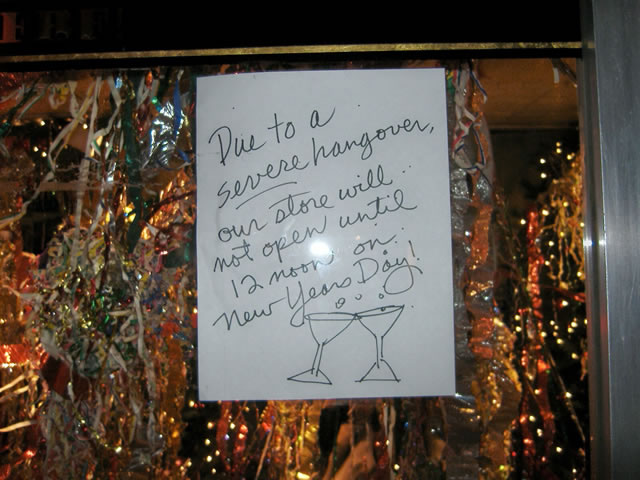 Due to a
severe hangover,
our store will
not open until
12 noon on
New Years Day!